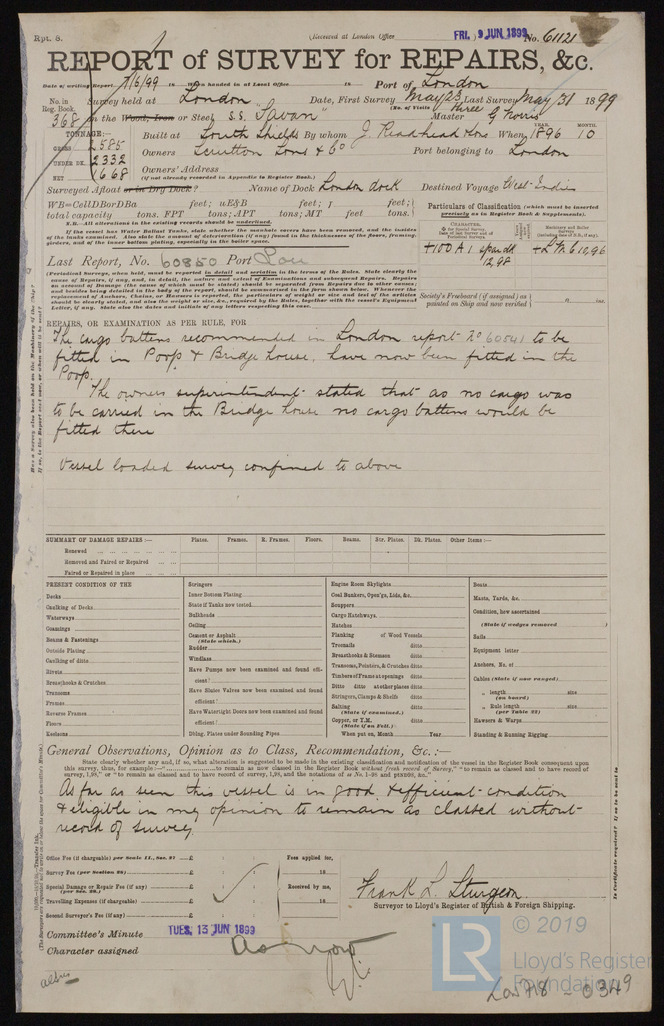 Rpt. 8.
(Received at London Office FRI. 9 JUN 1899 No. 61121
REPORT of SURVEY for REPAIRS, &c.
Date of writing Report 7/6/99 18 When handed in at Local Office 18 Port of London
No. in Reg. Book. Survey held at London Date, First Survey May 23 Last Survey May 31 1899
(No. of Visits Three
368 on the Wood, Iron or Steel S.S. Savan Master G Norris
TONNAGE:— Built at South Shields By whom J. Readhead & Sons When 1896 10
YEAR. MONTH.
GROSS 2585
UNDER DK. 2332 Owners Scrutton Sons & Co Port belonging to London
NET 1668 Owners' Address
(if not already recorded in Appendix to Register Book.)
Surveyed Afloat or in Dry Dock? Name of Dock London dock Destined Voyage West Indies
WB=CellDBorDBa feet; uE&B feet; f feet;
total capacity tons. FPT tons; APT tons; MT feet tons.
N.B.—All alterations in the existing records should be underlined.
If the vessel has Water Ballast Tanks, state whether the manhole covers have been removed, and the insides
of the tanks examined. Also state the amount of deterioration (if any) found in the thicknesses of the floors, framing,
girders, and of the inner bottom plating, especially in the boiler space.
Particulars of Classification (which must be inserted
precisely as in Register Book & Supplements).
+100A1 spar dk 12,98
+LMC 10,96
Last Report, No. 60850 Port Lon
(Periodical Surveys, when held, must be reported in detail and seriatim in the terms of the Rules. State clearly the
cause of Repairs, if any, and, in detail, the nature and extent of Examinations and subsequent Repairs. Repairs
on account of Damage (the cause of which must be stated) should be separated from Repairs due to other causes;
and besides being detailed in the body of the report, should be summarised in the form shown below. Whenever the
replacement of Anchors, Chains, or Hawsers is reported, the particulars of weight or size and test of the articles
should be clearly stated, and also the weight or size, &c., required by the Rules, together with the vessel's Equipment
Letter, if any. State also the dates and initials of any letters respecting this case.
Society's Freeboard (if assigned) as
painted on Ship and now verified " ins.
REPAIRS, OR EXAMINATION AS PER RULE, FOR
The cargo battens recommended in London report No 60541 to be
fitted in Poop & Bridge house, have now been fitted in the
Poop.
The owners superintendent stated that as no cargo was
to be carried in the Bridge house no cargo battens would be
fitted there
Vessel loaded survey confined to above
SUMMARY OF DAMAGE REPAIRS:— Plates. Frames. R. Frames. Floors. Beams. Str. Plates. Dk. Plates. Other Items:—
Renewed
Removed and Faired or Repaired
Faired or Repaired in place
PRESENT CONDITION OF THE
Decks
Caulking of Decks
Waterways
Coamings
Beams & Fastenings
Outside Plating
Caulking of ditto
Rivets
Breasthooks & Crutches
Transoms
Frames
Reverse Frames
Floors
Keelsons
Stringers
Inner Bottom Plating
State if Tanks now tested
Bulkheads
Ceiling
Cement or Asphalt
(State which.)
Rudder
Windlass
Have Pumps now been examined and found effi-
cient?
Have Sluice Valves now been examined and found
efficient?
Have Watertight Doors now been examined and found
efficient?
Dblng. Plates under Sounding Pipes
Engine Room Skylights
Coal Bunkers, Open'gs, Lids, &c.
Scuppers
Cargo Hatchways
Hatches
Planking of Wood Vessels
Treenails ditto
Breasthooks & Stemson ditto
Transoms, Pointers, & Crutches ditto
Timbers of Frame at openings ditto
Ditto ditto at other places ditto
Stringers, Clamps & Shelfs ditto
Salting ditto
(State if examined.)
Copper, or Y.M. ditto
(State if on Felt.)
When put on, Month Year
Boats
Masts, Yards, &c.
Condition, how ascertained
(State if wedges removed
Sails
Equipment letter
Anchors, No. of
Cables (State if now ranged)
" length size
(on board)
" Rule length size
(per Table 22)
Hawsers & Warps
Standing & Running Rigging
General Observations, Opinion as to Class, Recommendation, &c.:—
State clearly whether any, and if so, what alteration is suggested to be made in the existing classification and notification of the vessel in the Register Book consequent upon
this survey, thus, for example:—" to remain as now classed in the Register Book without fresh record of Survey," "to remain as classed and to have record of
survey, 1,98," or "to remain as classed and to have record of survey, 1,98, and the notations of ss No. 1-98 and ptND98, &c."
As far as seen this vessel is in good & efficient condition
& eligible in my opinion to remain as classed without
record of survey.
Office Fee (if chargeable) per Scale II., Sec. 21 £ : : Fees applied for,
Survey Fee (per Section 28) £ : : 18
Special Damage or Repair Fee (if any) £ : : Received by me,
(per Sec. 28.)
Travelling Expenses (if chargeable) £ : : 18
Second Surveyor's Fee (if any) £ : :
Frank L. Sturgeon
Surveyor to Lloyd's Register of British & Foreign Shipping.
Committee's Minute TUES. 13 JUN 1899
Character assigned as now
LR
© 2019
Lloyd's Register
Foundation
Lon 718 - 0349